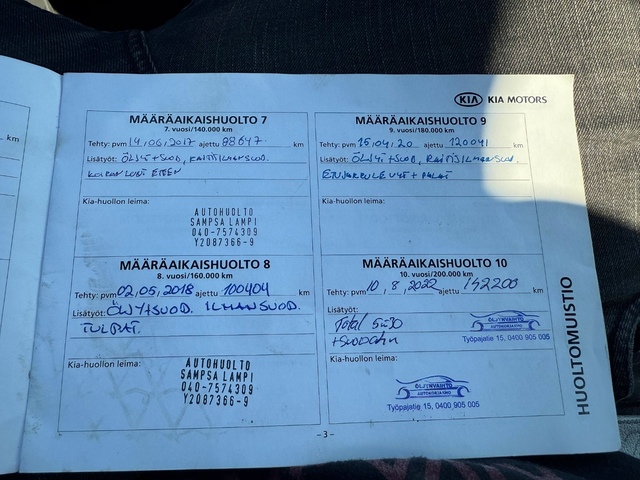 km
KIA KIA MOTORS
MÄÄRÄAIKAISHUOLTO 7
7. vuosi/140.000 km
Tehty: pvm 14.06.2017 ajettu 88647 km
Lisätyöt: ÖLJYT+SUOD, RAITISILMANSUOD.
ETEEN
Kia-huollon leima:
AUTOHUOLTO
SAMPSA LAMPI
040-7574309
Y2087366-9
MÄÄRÄAIKAISHUOLTO 8
8. vuosi/160.000 km
Tehty: pvm 02.05.2018 ajettu 100404 km
Lisätyöt: ÖLJYT+SUOD. ILMANSUOD.
TULPAT.
Kia-huollon leima:
AUTOHUOLTO
SAMPSA LAMPI
040-7574309
Y2087366-9
MÄÄRÄAIKAISHUOLTO 9
9. vuosi/180.000 km
Tehty: pvm 15.04.20 ajettu 120041 km
Lisätyöt: ÖLJYT+SUOD, RAITISILMANSUOD.
ETUJARRULEVYT+PALAT
Kia-huollon leima:
MÄÄRÄAIKAISHUOLTO 10
10. vuosi/200.000 km
Tehty: pvm 10,8,2022 ajettu 142200 km
Lisätyöt:
Total 5-30
+suodatin
ÖLJYNVAIHTO
AUTOKORJAAMO
Työpajatie 15, 0400 905 005
Kia-huollon leima:
ÖLJYNVAIHTO
AUTOKORJAAMO
Työpajatie 15, 0400 905 005
HUOLTOMUISTIO
-3-